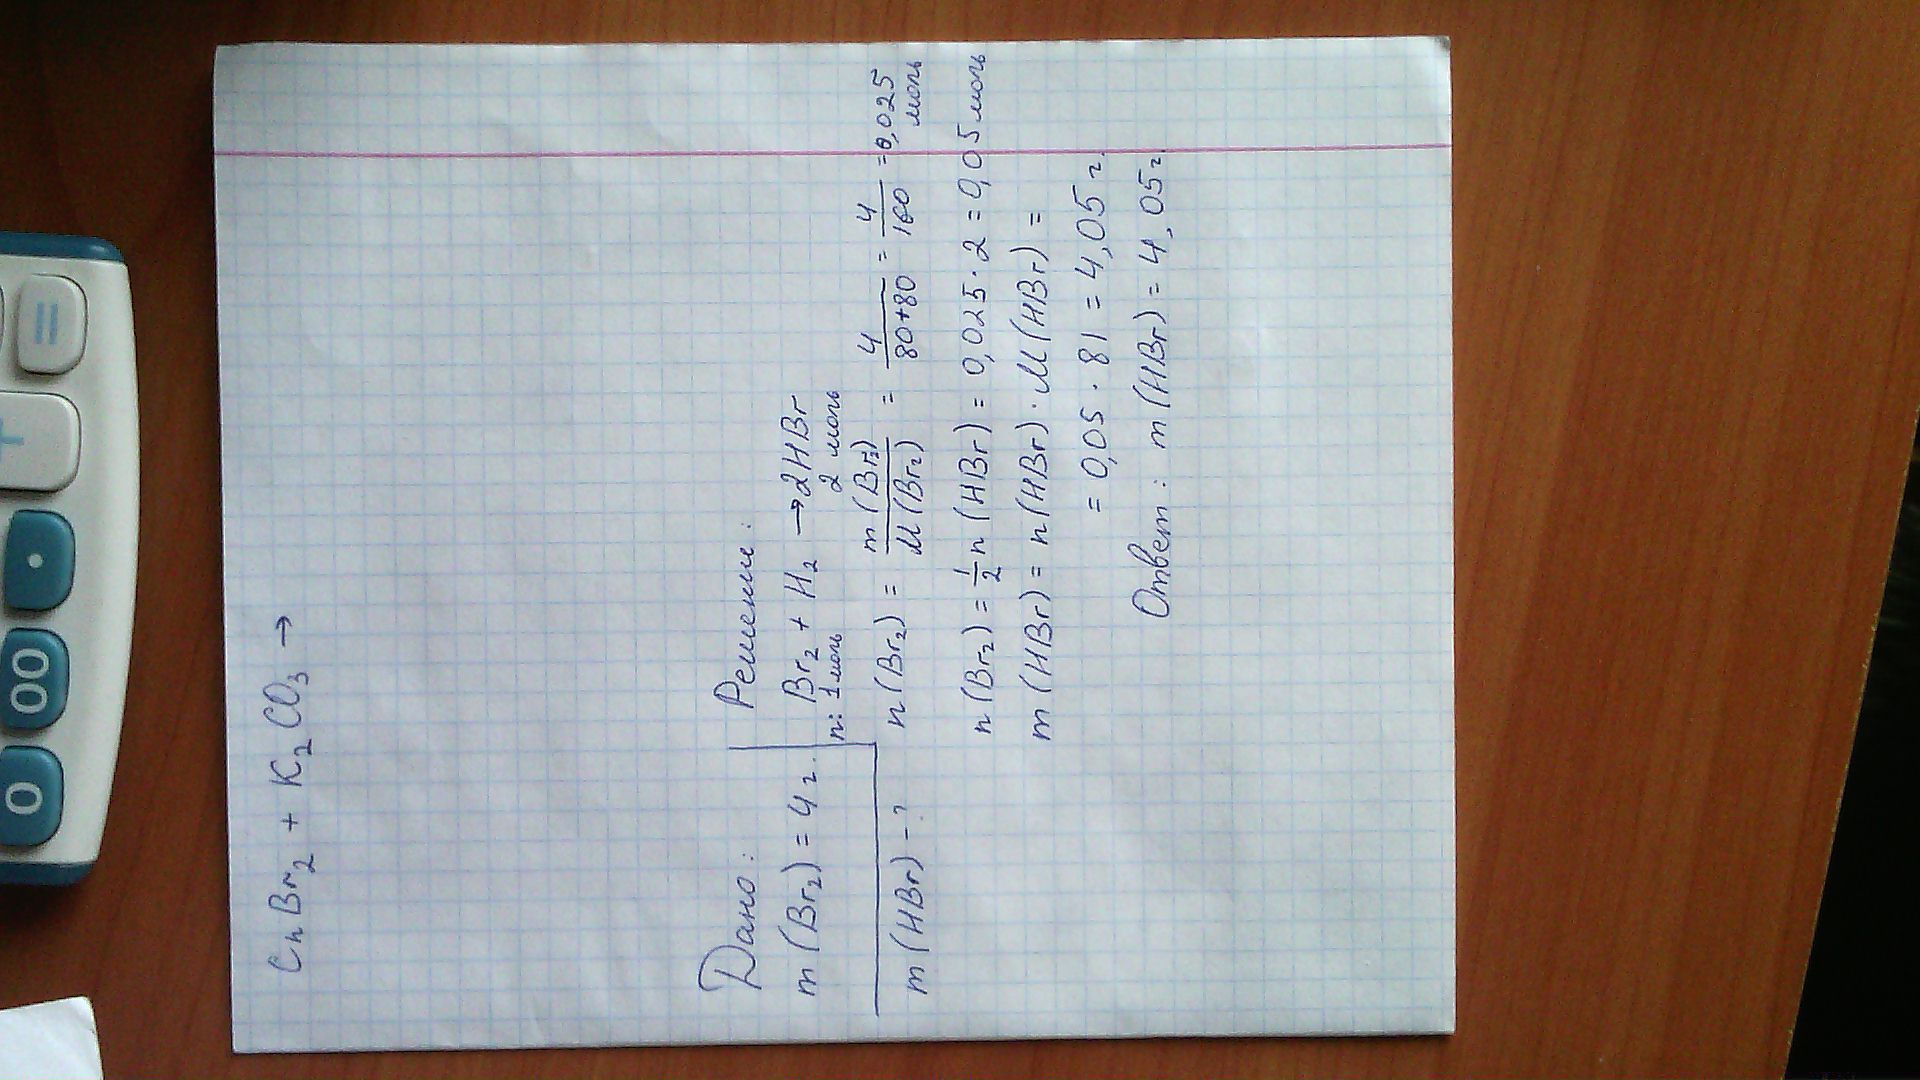 CnBr₂ + K₂CO₃ →
Дано:
m(Br₂) = 4г.
m(HBr) - ?
Решение:
Br₂ + H₂ → 2HBr
n: 1 моль 2 моль
n(Br₂) = m(Br₂)/M(Br₂) = 4/80+80 = 4/160 = 0,025 моль
n(Br₂) = 1/2 n(HBr) = 0,025 · 2 = 0,05 моль
m(HBr) = n(HBr) · M(HBr) =
= 0,05 · 81 = 4,05 г.
Ответ: m(HBr) = 4,05г.
=
+
.
00
0